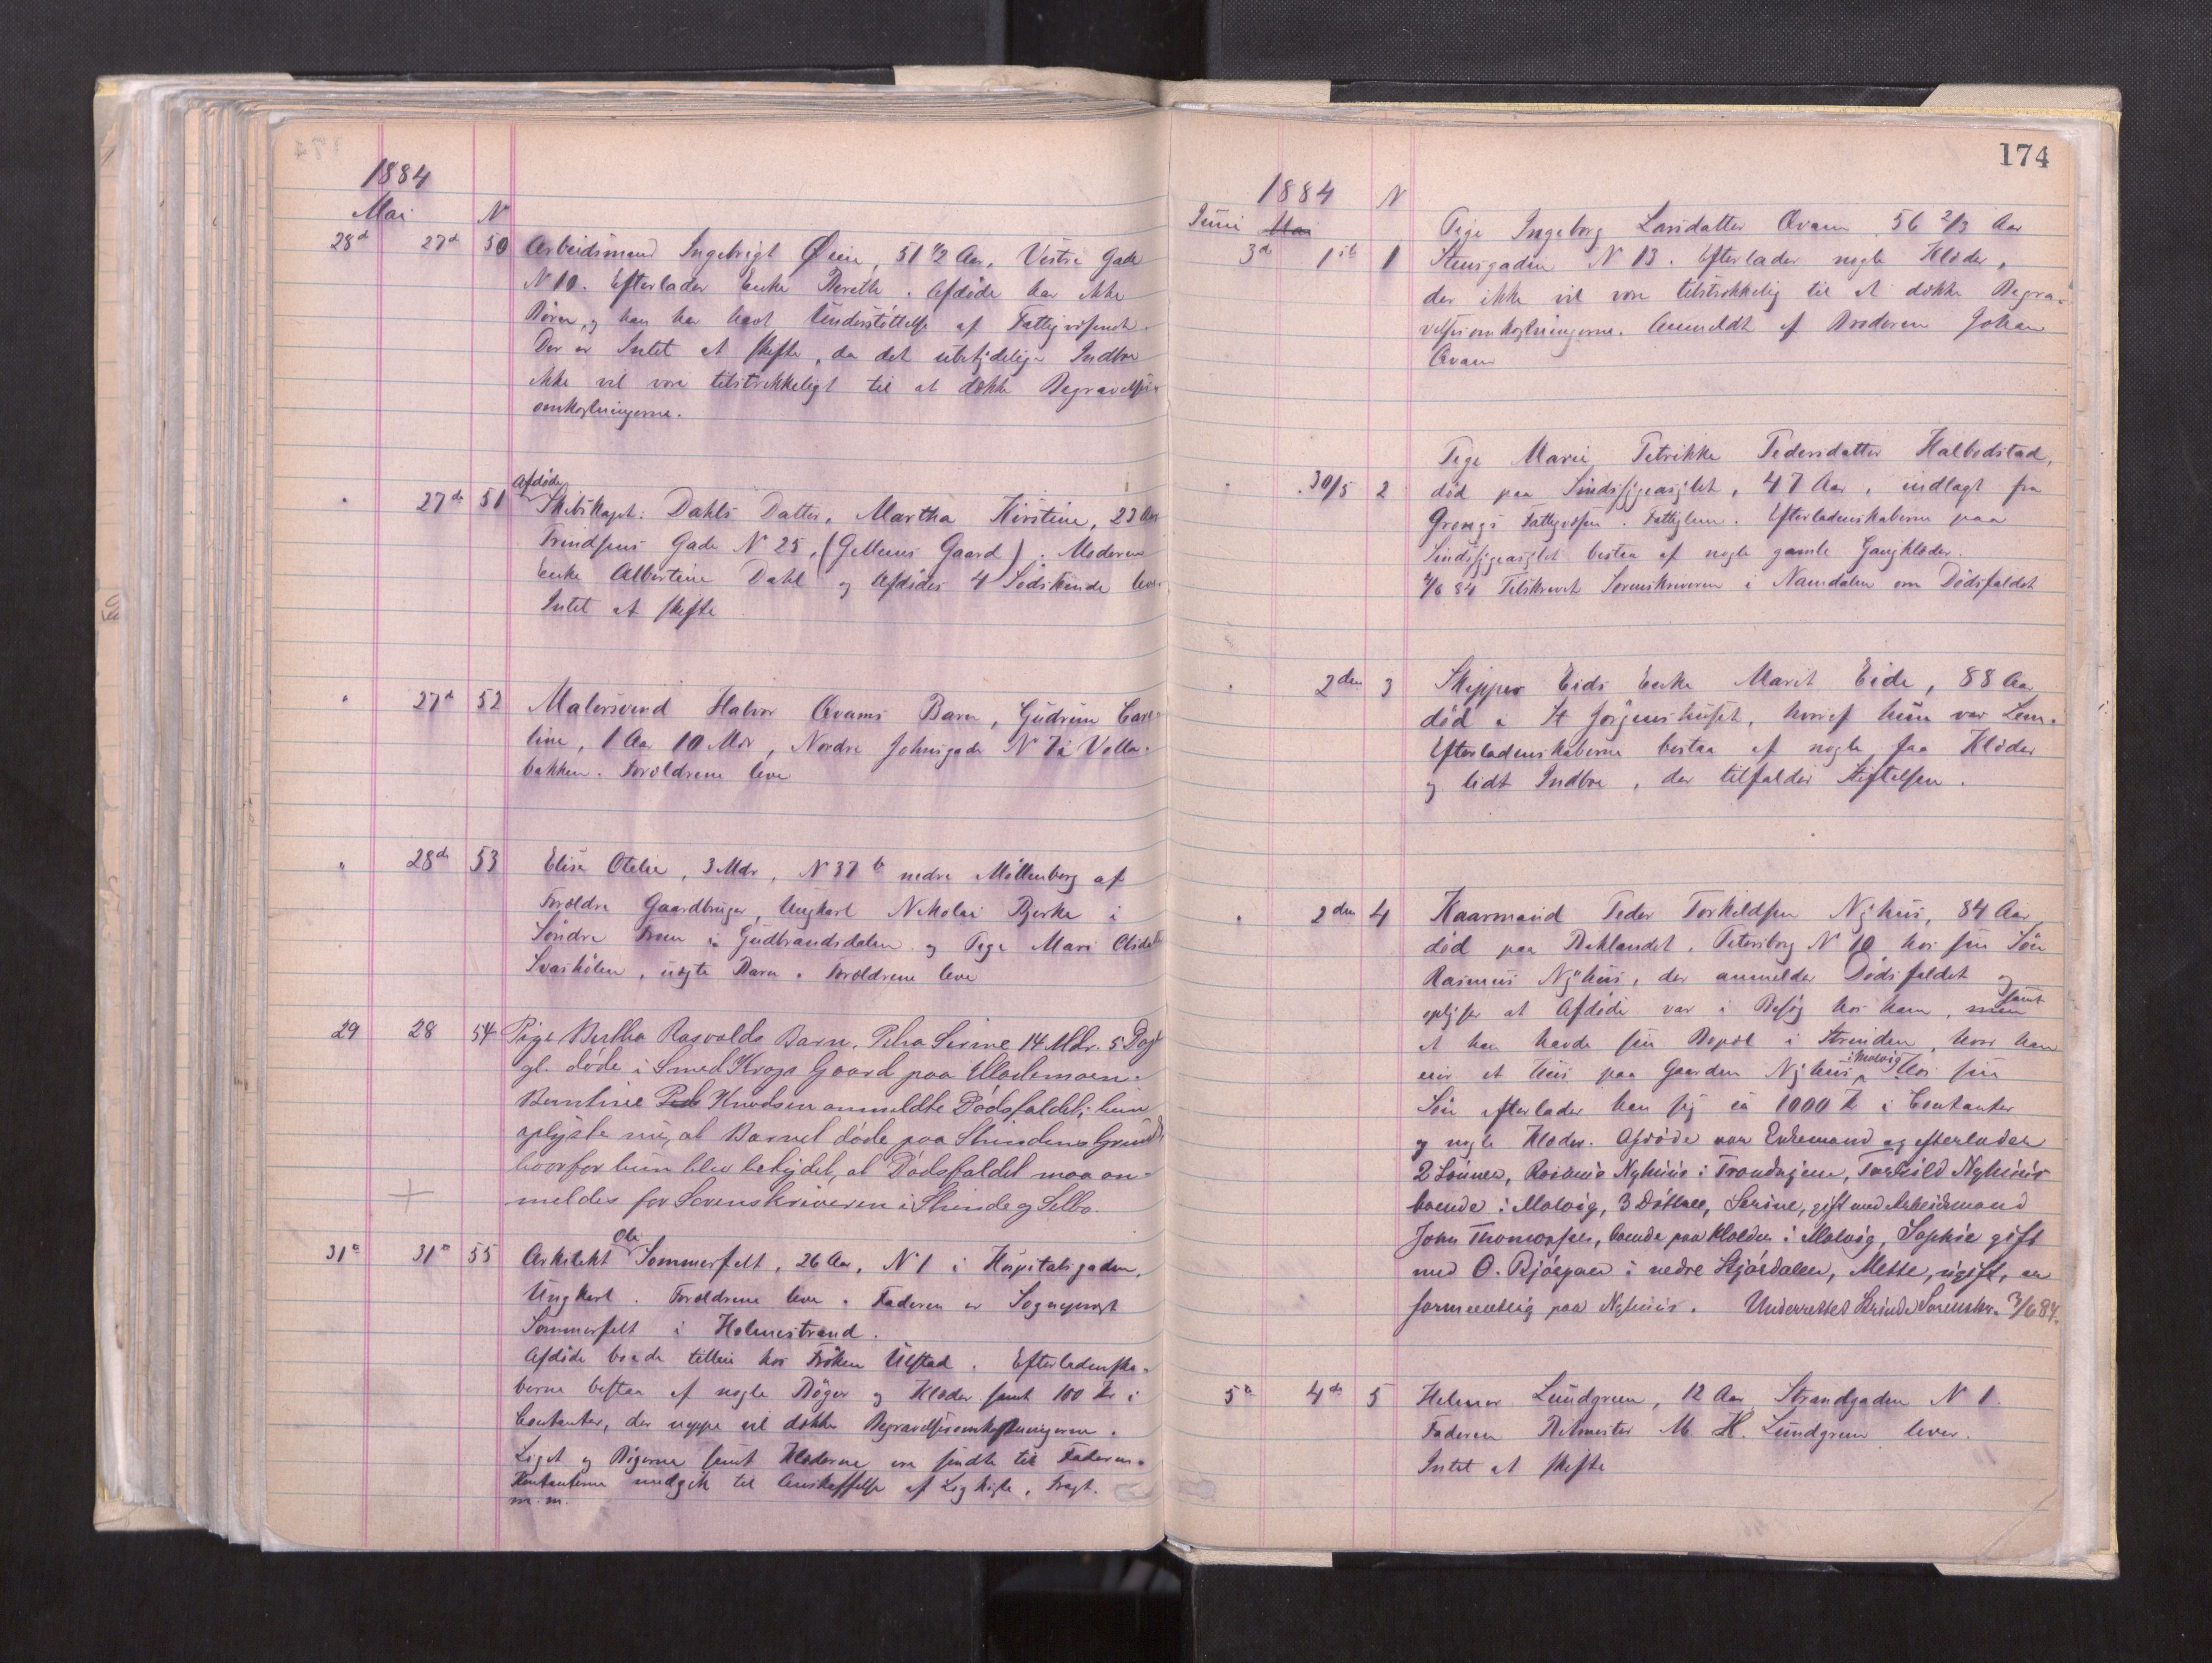 1884
Mai N
28d 27d 50 Arbeidsmand Ingebrigt Øien, 51 1/2 Aar, Vestre Gade
N 10. Efterlader Enke Berethe. Afdøde har ikke
Børn, og han har havt Understøttelse af Fattigvæsenet.
Der er Intet at skifte, da det ubetydelige Indbo
ikke vil være tilstrækkeligt til at dække Begravelses-
omkostningerne.
" 27de 51 Afdøde Skibskapt: Dahls Datter, Martha Kirstine, 23 Aar
Gade N 25, (Gellems Gaard). Moderen
Enke Albertine Dahl og Afdødes 4 Sødskende lever
Intet at skifte
" 27d 52 Malersvend Halvor Qvams Barn, Gudrun Caro-
line, 1 Aar 10 Mdr, Nordre Johnsgade N 7 i Volla-
bakken. Forældrene leve
" 28de 53 Elise Otelie, 3 Mdr, N 37 b nedre Møllenberg af
Forældre Gaardbruger, Ungkarl Nikolai Bjerke i
Søndre Fron i Gudbrandsdalen og Pige Mari
, uægte Barn. Forældrene leve
29 28 54 Pige Berthe Rasvolds Barn, Petra Sirine 14 Mdr. 5 Dage
gl. døde i Smed Krogs Gaard paa Ulademoen.
Berntine Knudsen anmeldte Dødsfaldet; hun
oplyste nu, at Barnet døde paa Strindens Grund,
hvorfor hun blev betydet, at Dødsfaldet maa an-
meldes for Sorenskriveren i Strinde og Selbo.
31te 31te 55 Arkitekt Ole Sommerfelt, 26 Aar, N 1 i Hospitalsgaden,
Ungkarl. Forældrene leve. Faderen er Sogneprest
Sommerfelt i Holmestrand.
Afdøde boede tilleie hos Frøken Ulstad. Efterladenska-
berne bestaa af nogle Bøger og Klæder samt 100 Kr i
Contanter, der neppe vil dække Begravelsesomkostningerne.
Liget og Bøgerne samt Klæderne ere sendte til Faderen.
Kontanterne medgik til Anskaffelse af Ligkiste, Fragt.
m. m.
174
1884 N
Juni Mai
Pige Ingeborg Larsdatter Qvam, 56 2/3 Aar
3de 1ste 1 Steensgaden N 13. Efterlader nogle Klæder,
der ikke vil være tilstrækkelig til at dække Begra-
velsesomkostningerne. Anmeldt af Broderen Johan
Qvam
Pige Marie Petrikke Pedersdatter Halbodstad,
" 30/5 2 død paa Sindssygeasylet, 47 Aar, indlagt fra
Grongs Fattigvæsen. Fattiglem. Efterladenskaberne paa
Sindssygeasylet bestaa af nogle gamle Gangklæder.
/6 84 Tilskrevet Sorenskriveren i Namdalen om Dødsfaldet
" 2den 3 Skipper Eids Enke Marit Eide, 88 Aar
død i St Jørgenshuset, hvoraf hun var Lem.
Efterladenskaberne bestaa af nogle faa Klæder
og lidt Indbo, der tilfalder Stiftelsen.
" 2den 4 Kaarmand Peder Torkildsen Nyhus, 84 Aar
død paa Baklandet, Petersborg N 10 hos sin Søn
Rasmus Nyhus, der anmelder Dødsfaldet og
oplyser at Afdøde var i Besøg hos ham, men samt
at han havde sin Bopæl i Strinden, hvor han
eier et Hus paa Gaarden Nyhus i Malvig. Hos sin
Søn efterlader han sig ca 1000 Kr i Contanter
og nogle Klæder. Afdøde var Enkemand og efterlader
2 Sønner, Rasmus Nyhuus i Trondhjem, Torkild Nyhuus
boende i Malvig, 3 Døttre, Serine, gift med Arbeidsmand
John Thomassen, boende paa Halden i Malvig, Sophie gift
med O. Bjørgaen i nedre Stjørdalen, Mette, ugift, er
formentlig paa Nyhuus. Underrettet Strinde Sorenskr. 3/6 84.
5te 4de 5 Helmer Lundgreen, 12 Aar, Strandgaden N 1.
Faderen Ritmester M. H. Lundgreen lever.
Intet at skifte